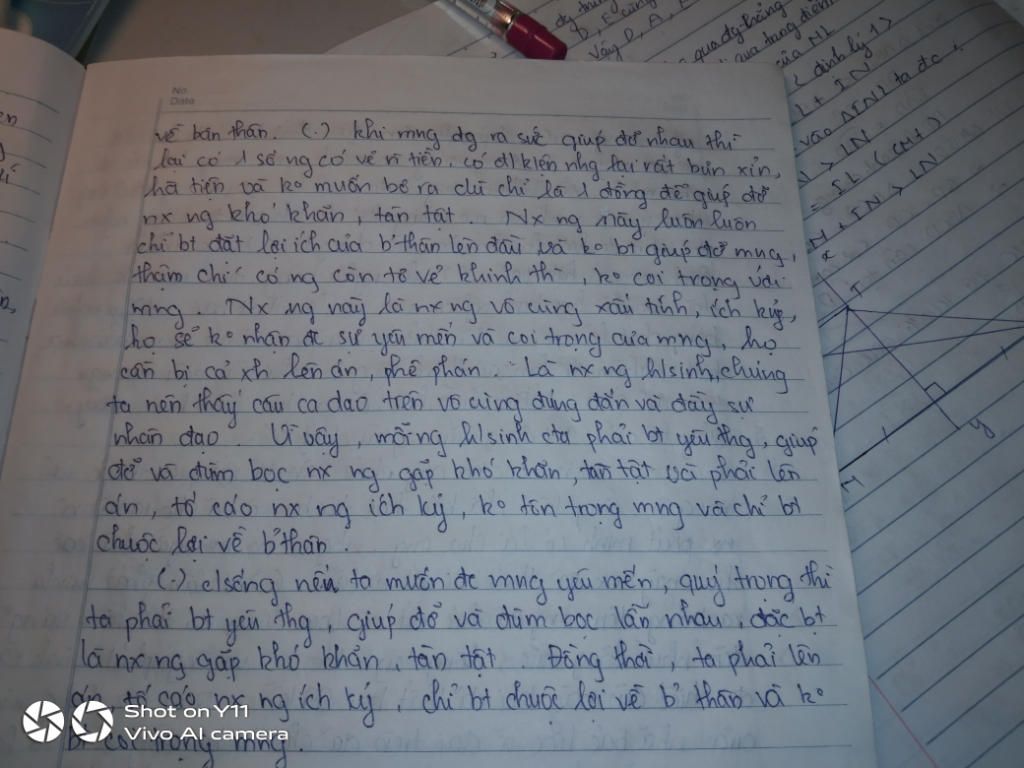 No.
Date
về bản thân. (.) khi mng đg ra sức giúp đỡ nhau thì
lại có 1 số ng có về rĩ tiền. có đ/kiện nhg lại rất bủn xỉn,
hà tiện và ko muốn bỏ ra dù chỉ là 1 đồng để giúp đỡ
nx ng khó khăn, tàn tật. Nx ng này luôn luôn
chỉ bt đặt lợi ích của b'thân lên đầu và ko bt giúp đỡ mng,
thậm chí có ng còn tỏ vẻ khinh thì, ko coi trọng với
mng. Nx ng này là nx ng vô cùng xấu tính, ích kỷ,
họ sẽ ko nhận đc sự yêu mến và coi trọng của mng, họ
cần bị cả xh lên án, phê phán. Là nx ng h/sinh, chúng
ta nên thấy câu ca dao trên vô cùng đúng đắn và đầy sự
nhân đạo. Vì vậy, mỗi ng h/sinh cta phải bt yêu thg, giúp
đỡ và đùm bọc nx ng gặp khó khăn, tàn tật và phải lên
án, tố cáo nx ng ích kỷ, ko tôn trọng mng và chỉ bt
chuộc lợi về b'thân.
(.) c/sống nếu ta muốn đc mng yêu mến, quý trọng thì
ta phải bt yêu thg, giúp đỡ và đùm bọc lẫn nhau, đặc bt
là nx ng gặp khó khăn, tàn tật. Đồng thời, ta phải lên
án tố cáo nx ng ích kỷ, chỉ bt chuộc lợi về b' thân và ko
bt coi trọng mng.
Shot on Y11
Vivo AI camera
vậy D, A,
qua đg thẳng
của HL
( định lý 1)
ta đc
> IN
= IL (cmt)
x
I
y
H